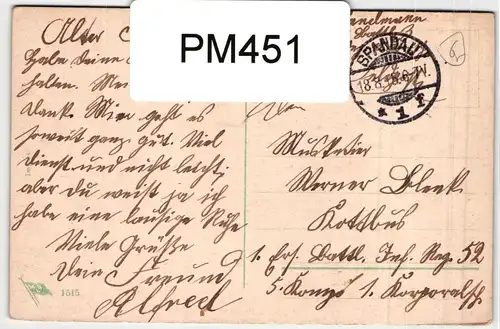 Alter
PM451
Habe deine
halten.
Dank. Mir geht es
soweit ganz gut. Viel
Dienst und nicht leicht,
aber Du weist ja ich
habe eine lausige Ruhe
Viele Grüße
Dein Freund
Alfred
1515
SPANDAU
* 1 f
6
Musketier
Werner Bleek
Kottbus
1. Ers. Battl. Inf. Reg. 52
5. Komp. 1. Korporalsch